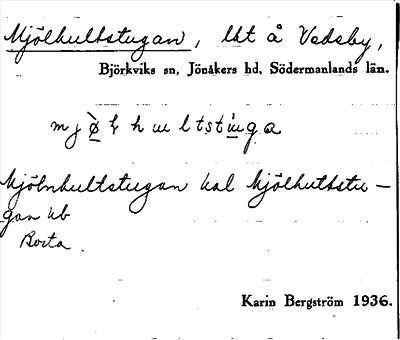 Mjölhultstugan, lht å Vadsby,
Björkviks sn, Jönåkers hd, Södermanlands län.
Mjölnhultstugan kal Mjölhultstu-
gan kb
Borta.
Karin Bergström 1936.